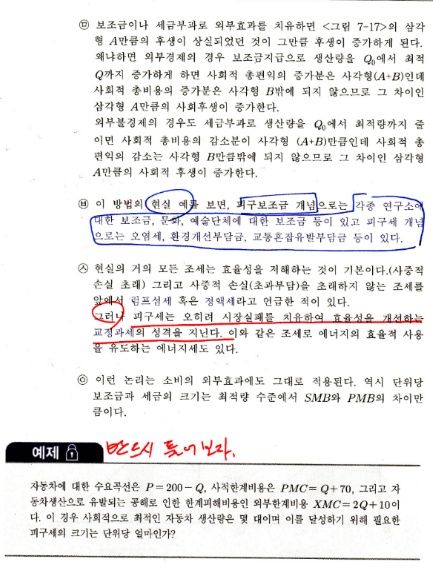 ㉲ 보조금이나 세금부과로 외부효과를 치유하면 <그림 7-17>의 삼각
형 A만큼의 후생이 상실되었던 것이 그만큼 후생이 증가하게 된다.
왜냐하면 외부경제의 경우 보조금지급으로 생산량을 Q₀에서 최적
Q까지 증가하게 하면 사회적 총편익의 증가분은 사각형(A+B)인데
사회적 총비용의 증가분은 사각형 B밖에 되지 않으므로 그 차이인
삼각형 A만큼의 사회후생이 증가한다.
외부불경제의 경우도 세금부과로 생산량을 Q₀에서 최적량까지 줄
이면 사회적 총비용의 감소분이 사각형 (A+B)만큼인데 사회적 총
편익의 감소는 사각형 B만큼밖에 되지 않으므로 그 차이인 삼각형
A만큼의 사회적 후생이 증가한다.
㉳ 이 방법의 현실 예를 보면, 피구보조금 개념으로는 각종 연구소에
대한 보조금, 문화, 예술단체에 대한 보조금 등이 있고 피구세 개념
으로는 오염세, 환경개선부담금, 교통혼잡유발부담금 등이 있다.
㉴ 현실의 거의 모든 조세는 효율성을 저해하는 것이 기본이다.(사중적
손실 초래) 그리고 사중적 손실(초과부담)을 초래하지 않는 조세를
앞에서 럼프섬세 혹은 정액세라고 언급한 적이 있다.
그러나 피구세는 오히려 시장실패를 치유하여 효율성을 개선하는
교정과세의 성격을 지닌다. 이와 같은 조세로 에너지의 효율적 사용
을 유도하는 에너지세도 있다.
ⓒ 이런 논리는 소비의 외부효과에도 그대로 적용된다. 역시 단위당
보조금과 세금의 크기는 최적량 수준에서 SMB와 PMB의 차이만
큼이다.
예제 반드시 풀어보자.
자동차에 대한 수요곡선은 P=200-Q, 사적한계비용은 PMC=Q+70, 그리고 자
동차생산으로 유발되는 공해로 인한 한계피해비용인 외부한계비용 XMC=2Q+10이
다. 이 경우 사회적으로 최적인 자동차 생산량은 몇 대이며 이를 달성하기 위해 필요한
피구세의 크기는 단위당 얼마인가?